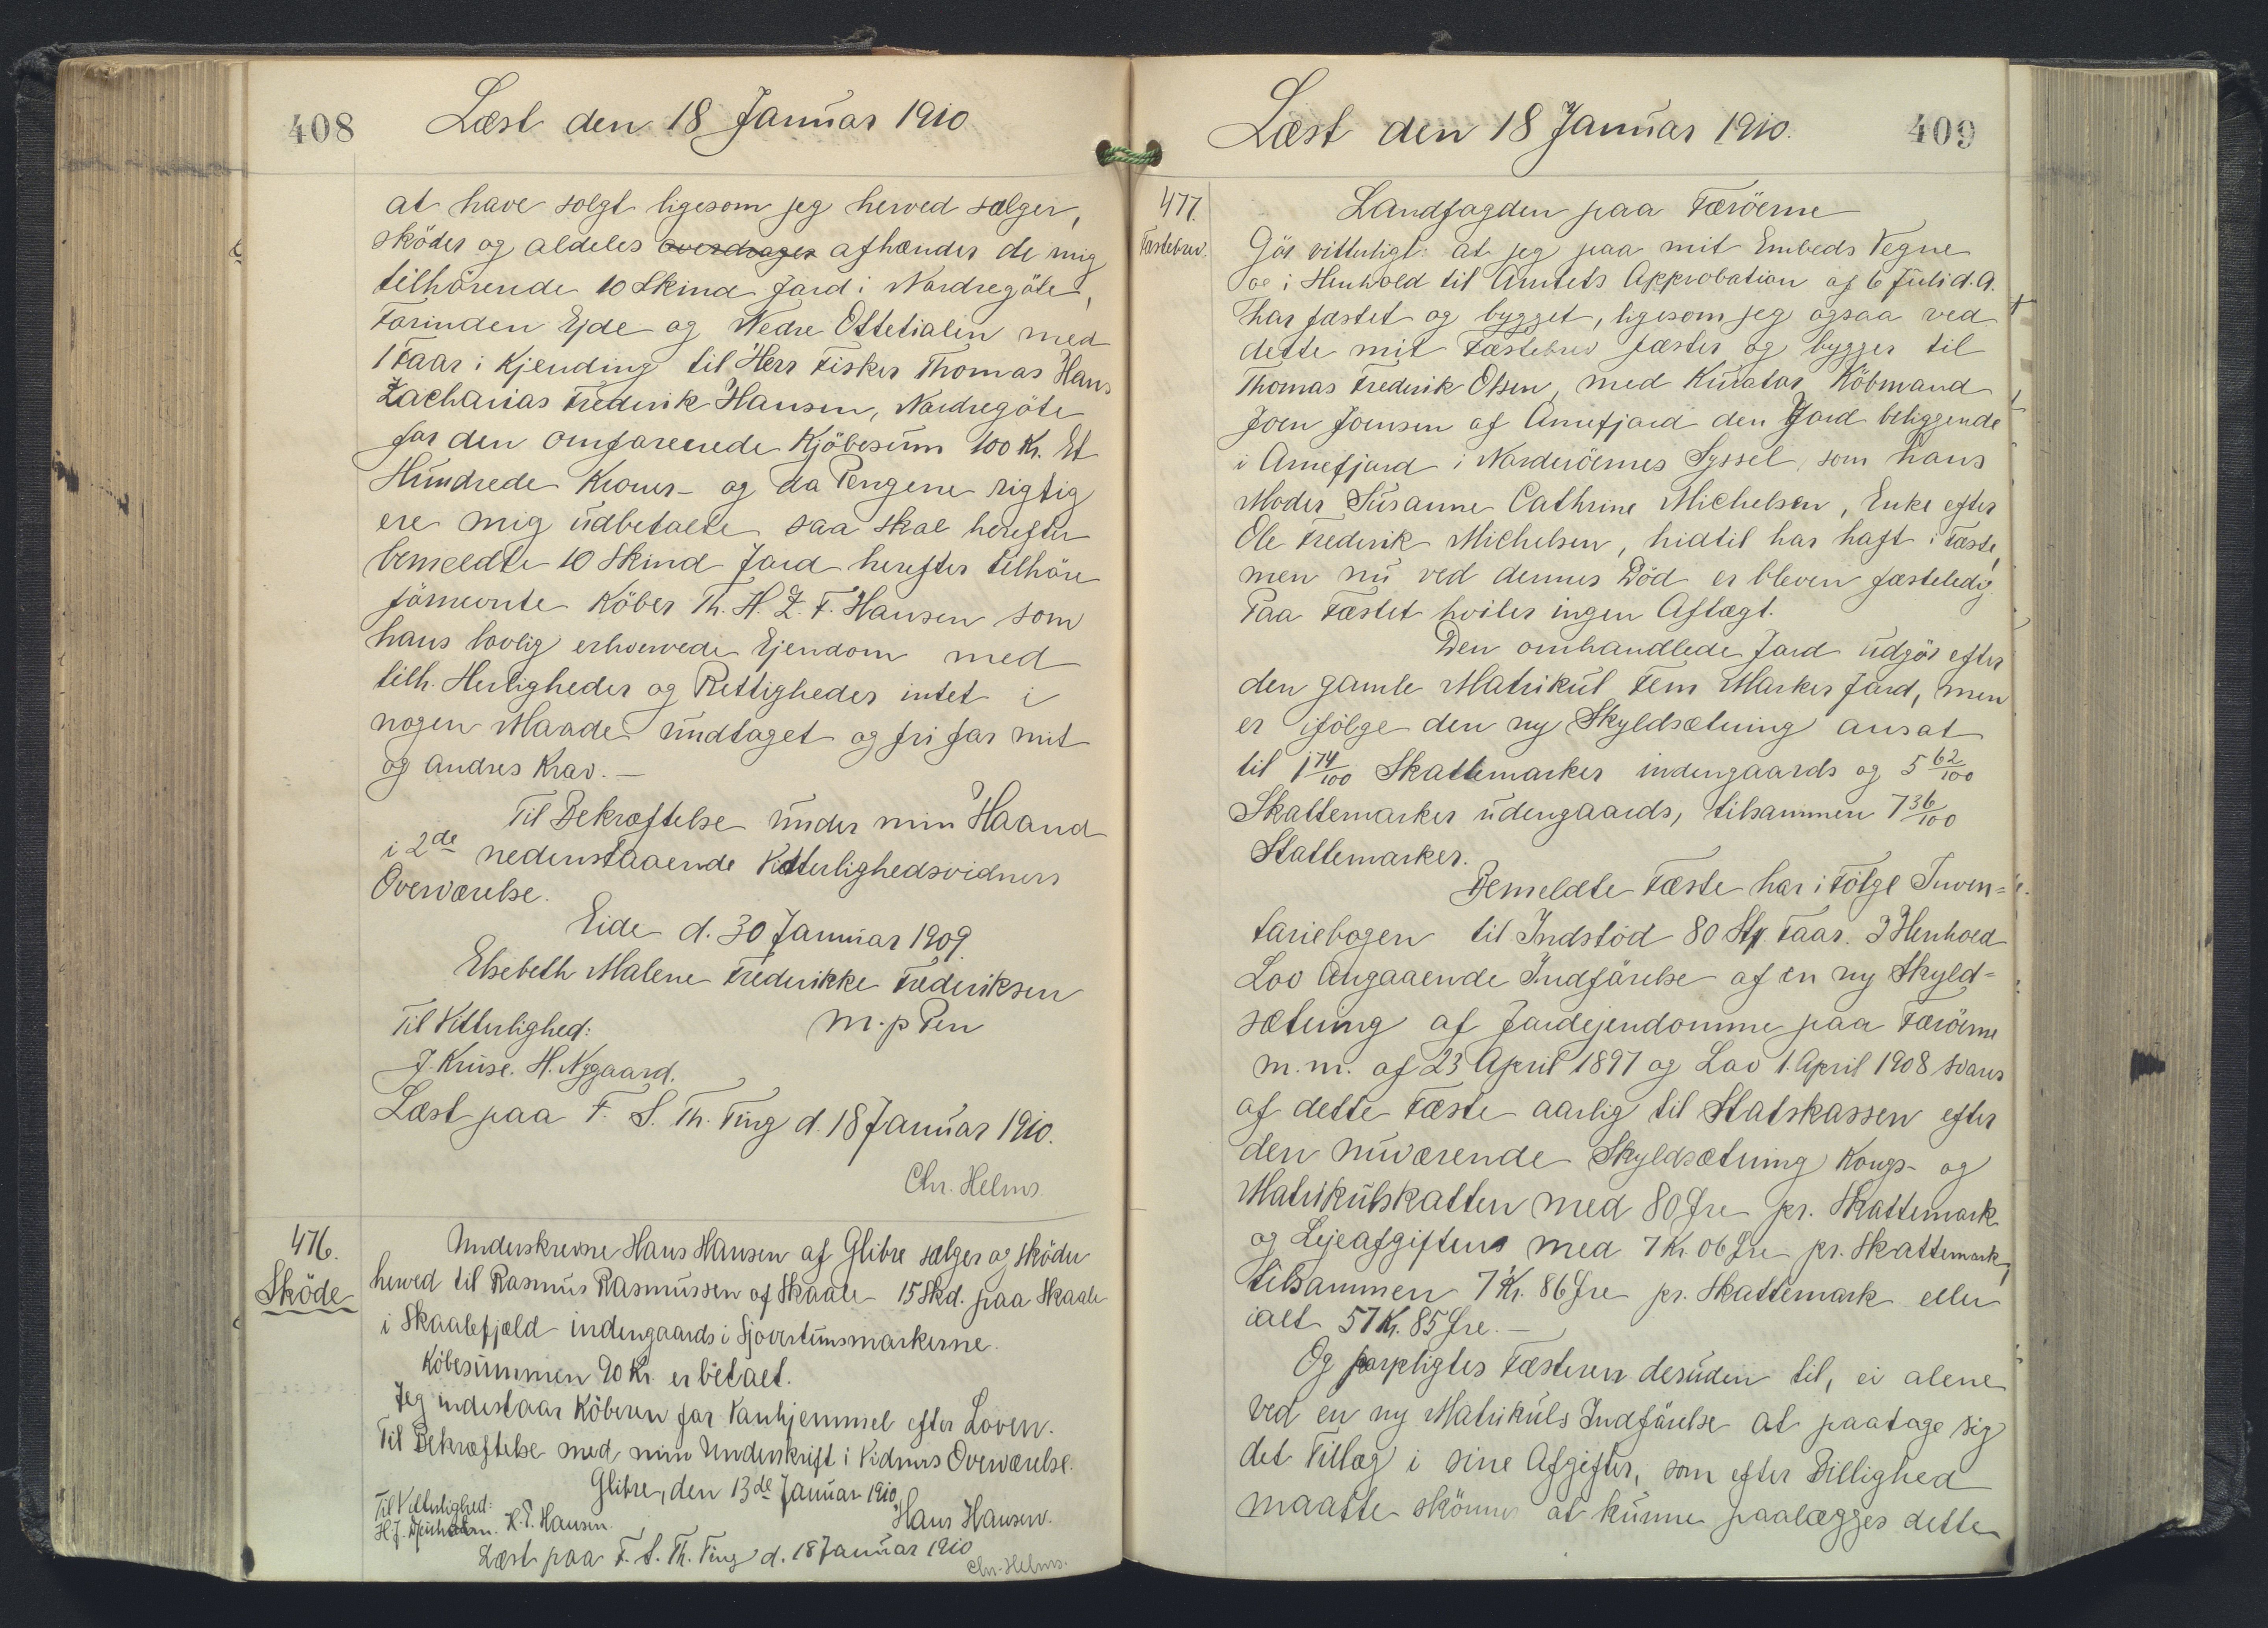 408
Læst den 18 Januar 1910
at have solgt ligesom jeg herved sælger,
sköder og aldeles overdrager afhænder de mig
tilhörende 10 Skind Jord i Nordregöte,
Forinden Ejde og Nedre Ottetialen med
1 Faar i Kjending til Herr Fisker Thomas Hans
Zacharias Frederik Hansen, Nordregöte
for den omforenede Kjöbesum 100 Kr. Et
Hundrede Kroner – og da Pengene rigtig
ere mig udbetalte saa skal herefter
bemeldte 10 Skind Jord herefter tilhöre
förnevnte Köber Th. H. Z. F. Hansen som
hans lovlig erhvervede Ejendom med
tilh. Herligheder og Rettigheder intet i
nogen Maade undtaget og fri for mit
og andres Krav. –
Til Bekræftelse under min Haand
i 2de nedenstaaende Vitterlighedsvidners
Overværelse.
Eide d. 30 Januar 1909.
Elsebeth Malene Frederikke Frederiksen
m. p Pen
Til Vitterlighed:
J. Kruse. H. Nygaard.
Læst paa F. S. Th. Ting d. 18 Januar 1910.
Chr. Helms.
476.
Sköde
Underskrevne Hans Hansen af Glibre sælger og sköder
herved til Rasmus Rasmussen af Skaale 15 Skd. paa Skaale
i Skaalefjæld indengaards i Sjovertunsmarkerne.
Köbesummen 90 Kr. er betalt.
Jeg indestaar Köberen for Vanhjemmel efter Loven.
Til Bekræftelse med min Underskrift i Vidners Overværelse.
Glibre, den 13de Januar 1910
Hans Hansen.
Til Vitterlighed:
H. J. K. P. Hansen.
Læst paa F. S. Th. Ting d. 18 Januar 1910
Chr. Helms.
Læst den 18 Januar 1910.
409
477.
Fæstebrev.
Landfogden paa Færöerne
Gör vitterligt: at jeg paa mit Embeds Vegne
og i Henhold til Amtets Approbation af 6 Juli d. A.
har fæstet og bygget, ligesom jeg ogsaa ved
dette mit Fæstebrev fæster og bygger til
Thomas Frederik Olsen, med Kurator Köbmand
Joen Joensen af Arnefjord den Jord beliggende
i Arnefjord i Norderöernes Syssel, som hans
Moder Susanne Cathrine Michelsen, Enke efter
Ole Frederik Michelsen, hidtil har haft i Fæste,
men nu ved dennes Död er bleven fæsteledig.
Paa Fæstet hviler ingen Aftægt.
Den omhandlede Jord udgör efter
den gamle Matrikul Fem Marker Jord, men
er ifölge den ny Skyldsætning ansat
til 1 74/100 Skattemarker indengaards og 5 62/100
Skattemarker udengaards, tilsammen 7 36/100
Skattemarker.
Bemeldte Fæste har i Fölge Inven=
tariebogen til Indstöd 80 Stk. Faar. I Henhold
Lov Angaaende Indförelse af en ny Skyld=
sætning af Jordejendomme paa Færöerne
m. m. af 23 April 1897 og Lov 1. April 1908 svares
af dette Fæste aarlig til Statskassen efter
den nuværende Skyldsætning Kongs- og
Matrikulskatten med 80 Øre pr. Skattemark
og Lejeafgiften med 7 Kr. 06 Øre pr. Skattemark,
tilsammen 7 Kr. 86 Øre pr. Skattemark eller
ialt 57 Kr. 85 Øre. –
Og forpligtes Fæsteren desuden til, ei alene
ved en ny Matrikuls Indförelse at paatage sig
det Tillæg i sine Afgifter, som efter Billighed
maatte skönnes at kunne paalægges dette